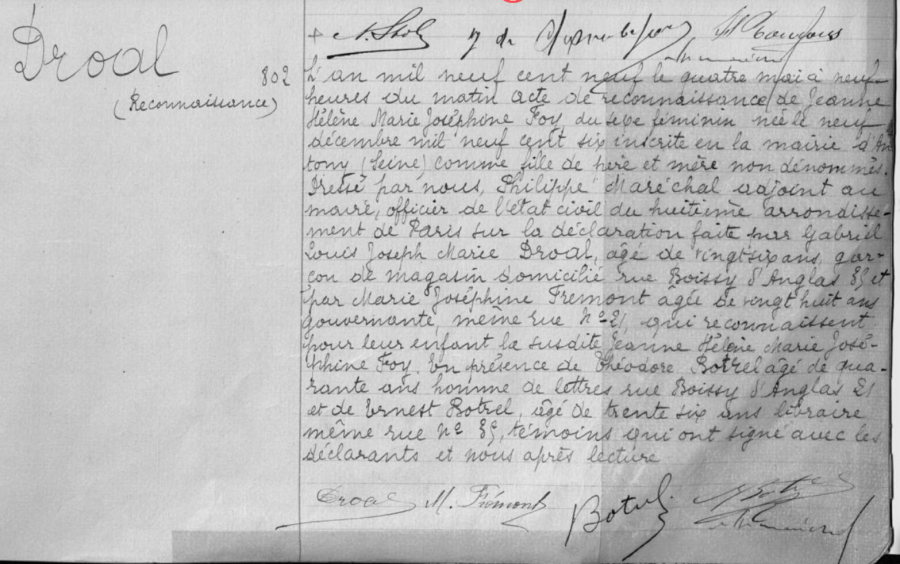 Droal
802
(Reconnaissance)
L'an mil neuf cent neuf le quatre mai à neuf
heures du matin acte de reconnaissance de Jeanne
Hélène Marie Joséphine Foy, du sexe féminin née le neuf
décembre mil neuf cent six inscrite en la mairie d'An
tony (Seine) comme fille de père et mère non dénommés.
Dressé par nous, Philippe Maréchal adjoint au
maire, officier de l'état civil du huitième arrondisse-
ment de Paris sur la déclaration faite par Gabriel
Louis Joseph Marie Droal, âgé de vingt six ans, gar-
çon de magasin domicilié rue Boissy d'Anglas 35 et
par Marie Joséphine Frémont âgée de vingt huit ans
gouvernante, même rue No 21, qui reconnaissent
pour leur enfant la susdite Jeanne Hélène Marie José-
phine Foy. En présence de Théodore Botrel âgé de qua-
rante ans homme de lettres rue Boissy d'Anglas 21
et de Ernest Botrel, âgé de trente six ans libraire
même rue No 35, témoins qui ont signé avec les
déclarants et nous après lecture
Droal M. Frémont Botrel